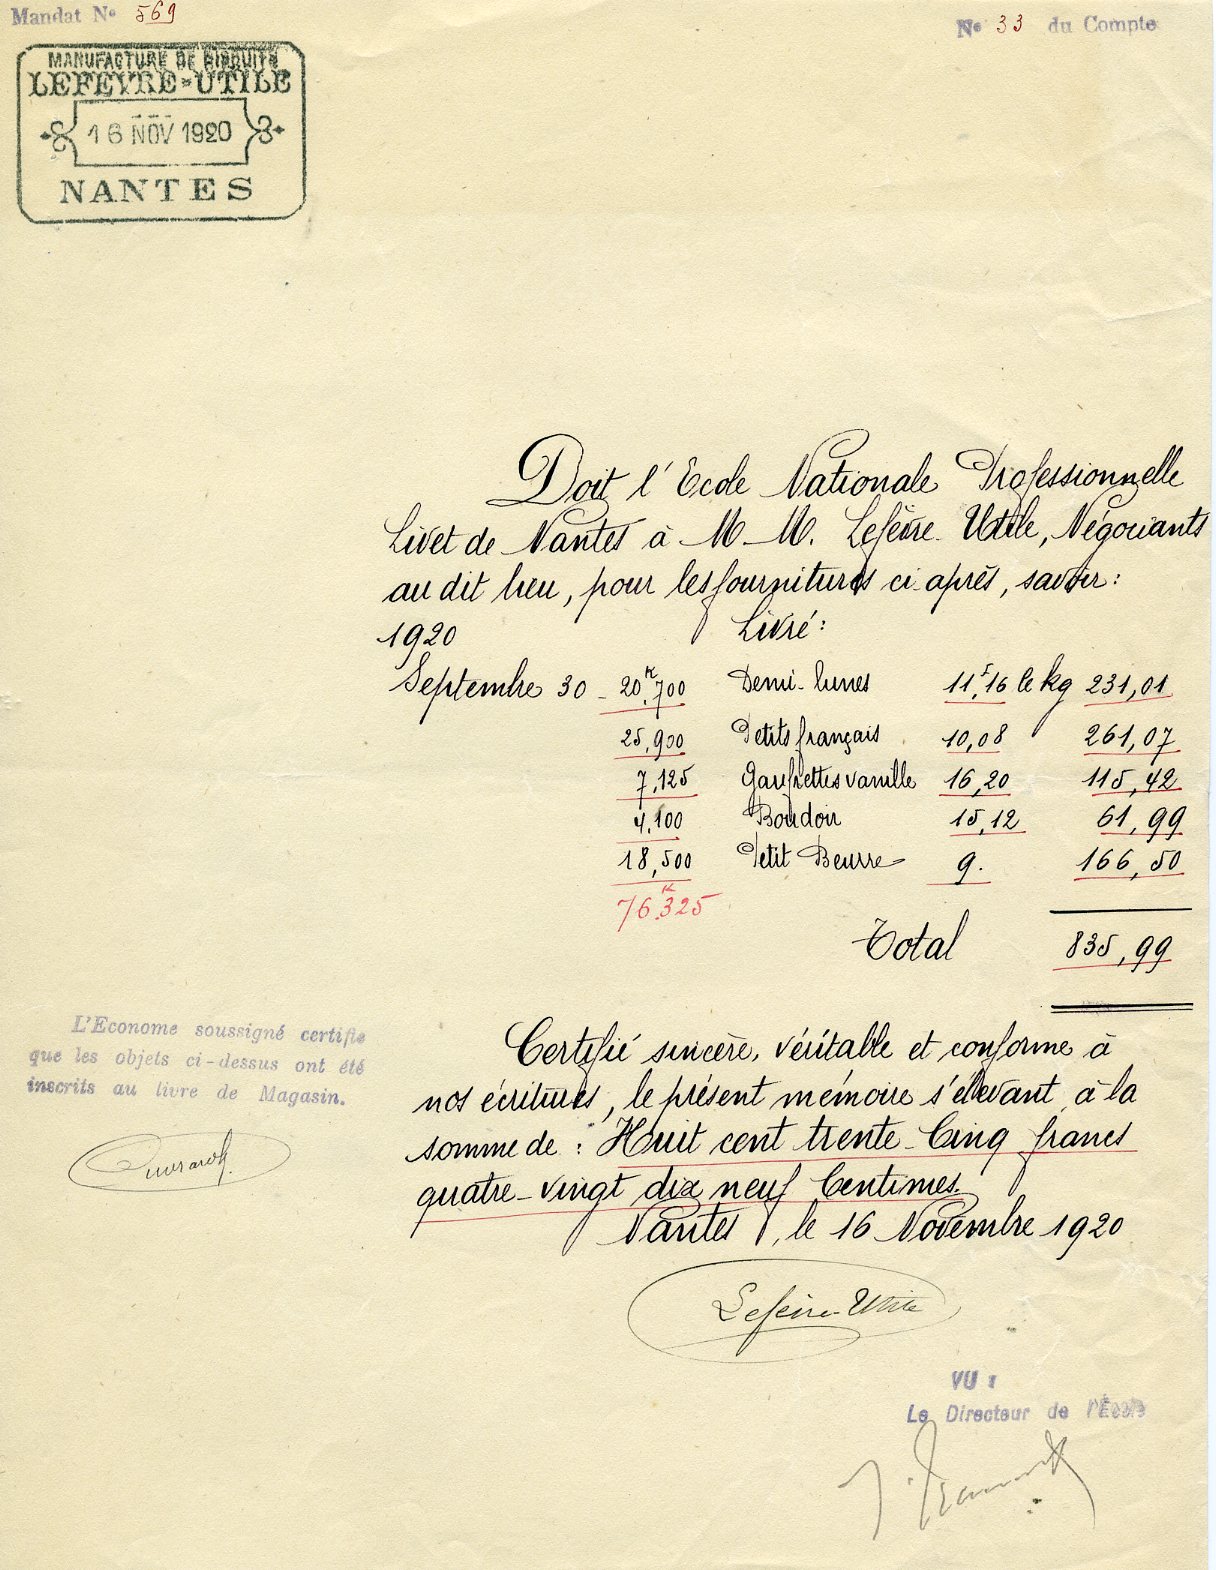 Mandat Nº 569
Nº 33 du Compte
MANUFACTURE DE BISCUITS
LEFEVRE-UTILE
16 NOV 1920
NANTES
Doit l'Ecole Nationale Professionnelle
Livet de Nantes à M.M. Lefèvre-Utile, Négociants
au dit lieu, pour les fournitures ci-après, savoir:
1920 Livré:
Septembre 30 - 20K,700 Demi-lunes 11f,16 le kg 231,01
25,900 Petits français 10,08 261,07
7,125 Gaufrettes vanille 16,20 115,42
4,100 Boudoir 15,12 61,99
18,500 Petit Beurre 9. 166,50
76K,325
Total 835,99
L'Econome soussigné certifie
que les objets ci-dessus ont été
inscrits au livre de Magasin.
Certifié sincère, véritable et conforme à
nos écritures, le présent mémoire s'élevant à la
somme de : Huit cent trente-Cinq francs
quatre-vingt dix neuf Centimes.
Nantes, le 16 Novembre 1920
Lefèvre-Utile
VU :
Le Directeur de l'École